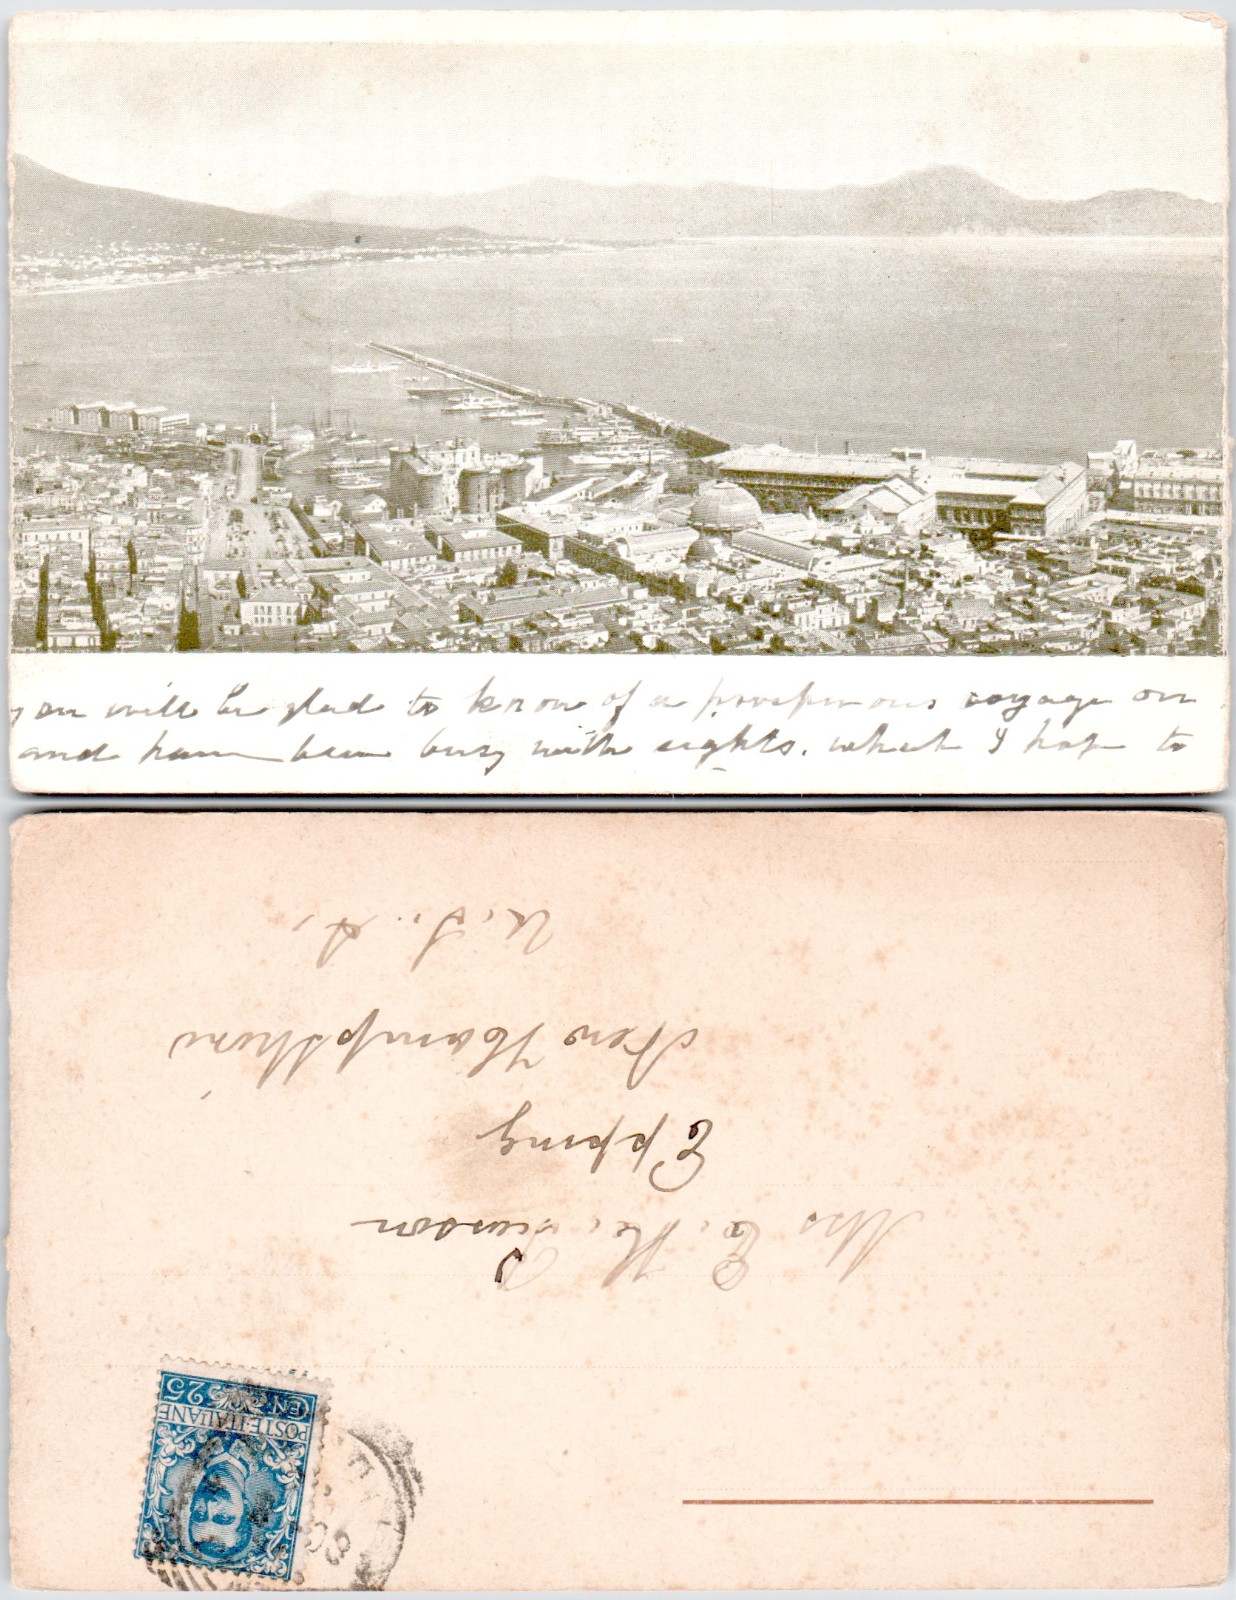 you will be glad to know of a prosperous voyage on
and have been busy with sights. which I hope to
Mrs E. K. Pearson
Epping
New Hampshire
U. S. A.
POSTE ITALIANE
CEN. 25